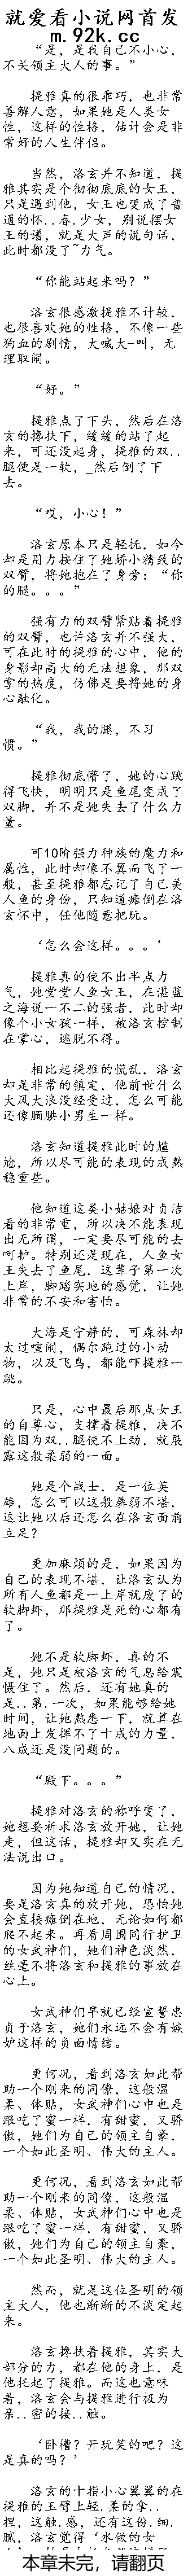 就爱看小说网首发
m.92k.cc
“是，是我自己不小心，
不关领主大人的事。”
提雅真的很乖巧，也非常
善解人意，如果她是人类女
性，这样的性格，估计会是非
常好的人生伴侣。
当然，洛玄并不知道，提
雅其实是个彻彻底底的女王，
只是遇到他，女王也变成了普
通的怀..春.少女，别说摆女
王的谱，就是大声的说句话，
此时都没了~力气。
“你能站起来吗？”
洛玄很感激提雅不计较，
也很喜欢她的性格，不像一些
狗血的剧情，大喊大-叫，无
理取闹。
“好。”
提雅点了下头，然后在洛
玄的搀扶下，缓缓的站了起
来，可还没起身，提雅的双..
腿便是一软，_然后倒了下
去。
“哎，小心！”
洛玄原本只是轻抚，如今
却是用力按住了她娇小精致的
双臂，将她抱在了身旁：“你
的腿。。。”
强有力的双臂紧贴着提雅
的双臂，也许洛玄并不强大，
可在此时的提雅的心中，他的
身影却高大的无法想象，那双
掌的热度，仿佛是要将她的身
心融化。
“我，我的腿，不习
惯。”
提雅彻底懵了，她的心跳
得飞快，明明只是鱼尾变成了
双脚，并不是她失去了什么力
量。
可10阶强力种族的魔力和
属性，此时却像不翼而飞了一
般，甚至提雅都忘记了自己美
人鱼的身份，只知道瘫倒在洛
玄怀中，任他随意把玩。
‘怎么会这样。。。’
提雅真的使不出半点力
气，她堂堂人鱼女王，在湛蓝
之海说一不二的强者，此时却
像个小女孩一样，被洛玄控制
在掌心，逃脱不得。
相比起提雅的慌乱，洛玄
却是非常的镇定，他前世什么
大风大浪没经受过，怎么可能
还像腼腆小男生一样。
洛玄知道提雅此时的尴
尬，所以尽可能的表现的成熟
稳重些。
他知道这类小姑娘对贞洁
看的非常重，所以决不能表现
出无所谓，一定要尽可能的去
呵护。特别还是现在，人鱼女
王失去了鱼尾，这辈子第一次
上岸，脚踏实地的感觉，让她
非常的不安和害怕。
大海是宁静的，可森林却
太过喧闹，偶尔跑过的小动
物，以及飞鸟，都能吓提雅一
跳。
只是，心中最后那点女王
的自尊心，支撑着提雅，决不
能因为双..腿使不上劲，就展
露这般柔弱的一面。
她是个战士，是一位英
雄，怎么可以这般孱弱不堪，
这让她以后还怎么在洛玄面前
立足？
更加麻烦的是，如果因为
自己的表现不堪，让洛玄认为
所有人鱼都是一上岸就废了的
软脚虾，那提雅是死的心都有
了。
她不是软脚虾，真的不
是，她只是被洛玄的气息给震
慑住了。然后，还有她真的
是..第.一次，如果能够给她
时间，让她熟悉一下，就算在
地面上发挥不了十成的力量，
八成还是没问题的。
“殿下。。。”
提雅对洛玄的称呼变了，
她想要祈求洛玄放开她，让她
走，但这话，提雅却又实在无
法说出口。
因为她知道自己的情况，
要是洛玄真的放开她，恐怕她
会直接瘫倒在地，无论如何都
爬不起来。再看周围同行护卫
的女武神们，她们神色淡然，
丝毫不将洛玄和提雅的事放在
心上。
女武神们早就已经宣誓忠
贞于洛玄，她们永远不会有嫉
妒这样的负面情绪。
更何况，看到洛玄如此帮
助一个刚来的同僚，这般温
柔、体贴，女武神们心中也是
跟吃了蜜一样，有甜蜜，又骄
傲，她们为自己的领主自豪，
一个如此圣明、伟大的主人。
更何况，看到洛玄如此帮
助一个刚来的同僚，这般温
柔、体贴，女武神们心中也是
跟吃了蜜一样，有甜蜜，又骄
傲，她们为自己的领主自豪，
一个如此圣明、伟大的主人。
然而，就是这位圣明的领
主大人，他也渐渐的不淡定起
来。
洛玄搀扶着提雅，其实大
部分的力，都在他的身上，是
他托起了提雅。而这也意味
着，洛玄会与提雅进行极为
亲..密的接..触。
‘卧槽？开玩笑的吧？这
是真的吗？’
洛玄的十指小心翼翼的在
提雅的玉臂上轻.柔的拿..
捏，这触.感，还有这份.细.
腻，洛玄觉得‘水做的女
本章未完，请翻页